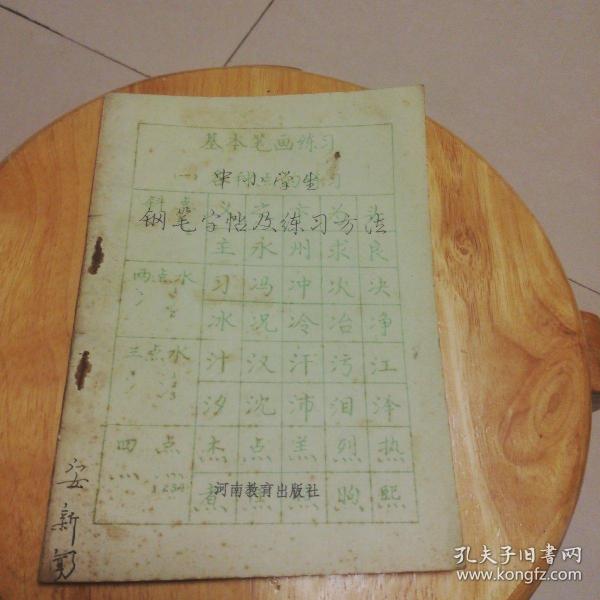 基本笔画练习
中小学生
钢笔字帖及练习方法
主 永 州 求 良
两点水 习 冯 冲 次 决
冰 况 冷 冶 净
三点水 汁 汉 汗 污 江
汐 沈 沛 泪 泽
四点 杰 点 羔 烈 热
煮 煦 熙
河南教育出版社
安新
孔夫子旧书网
www.kongfz.com